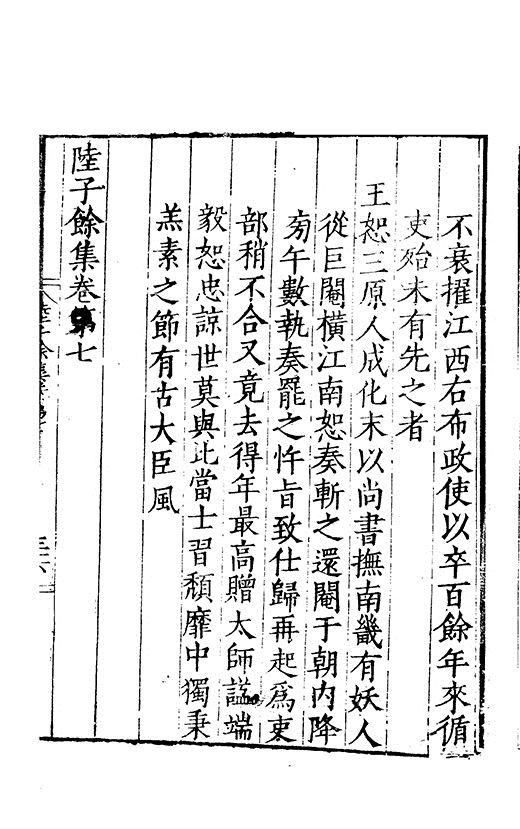 不衰擢江西右布政使以卒百餘年來循
吏殆未有先之者
王恕三原人成化末以尚書撫南畿有妖人
從巨閹橫江南恕奏斬之還閹于朝内降
旁午數執奏罷之忤旨致仕歸再起爲吏
部稍不合又竟去得年最高贈太師謚端
毅恕忠諒世莫與比當士習頹靡中獨秉
羔素之節有古大臣風
陸子餘集卷第七